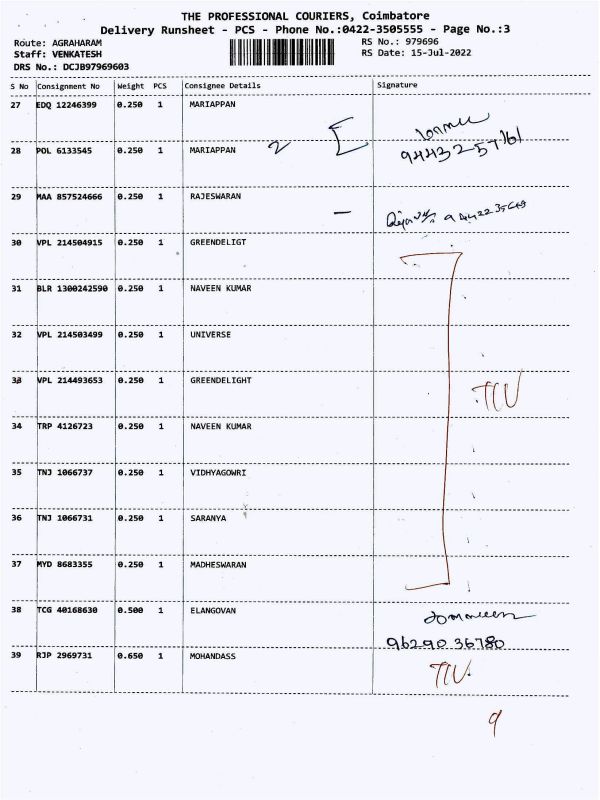 THE PROFESSIONAL COURIERS, Coimbatore
Delivery Runsheet - PCS - Phone No.:0422-3505555 - Page No.:3
Route: AGRAHARAM
Staff: VENKATESH
DRS No.: DCJB97969603
RS No.: 979696
RS Date: 15-Jul-2022
S No Consignment No Weight PCS Consignee Details Signature
27 EDQ 12246399 0.250 1 MARIAPPAN
28 POL 6133545 0.250 1 MARIAPPAN 2
29 MAA 857524666 0.250 1 RAJESWARAN
30 VPL 214504915 0.250 1 GREENDELIGT
31 BLR 1300242590 0.250 1 NAVEEN KUMAR
32 VPL 214503499 0.250 1 UNIVERSE
33 VPL 214493653 0.250 1 GREENDELIGHT
TIU
34 TRP 4126723 0.250 1 NAVEEN KUMAR
35 TNJ 1066737 0.250 1 VIDHYAGOWRI
36 TNJ 1066731 0.250 1 SARANYA
37 MYD 8683355 0.250 1 MADHESWARAN
38 TCG 40168630 0.500 1 ELANGOVAN
9629036780
39 RJP 2969731 0.650 1 MOHANDASS TIU
9